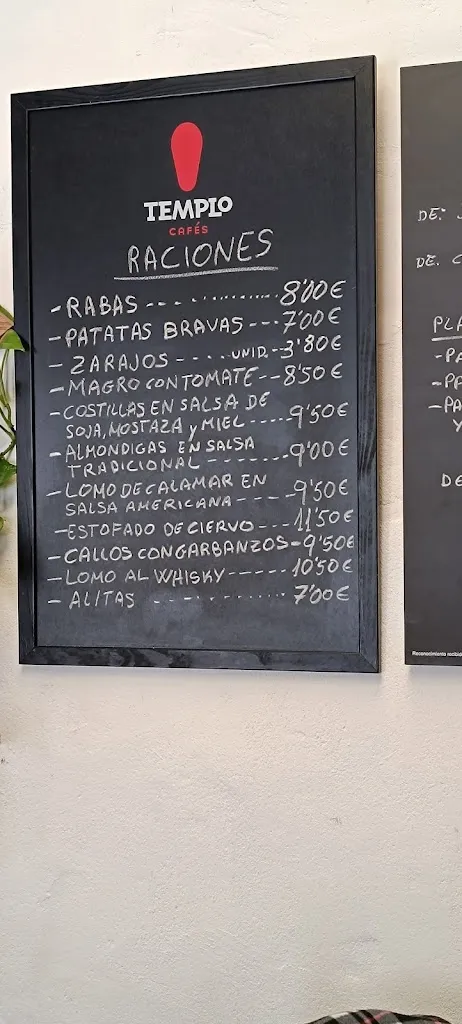 TEMPLO
CAFÉS
RACIONES
- RABAS --------- 8'00€
- PATATAS BRAVAS --- 7'00€
- ZARAJOS - .... UNID. - 3'80€
- MAGRO CON TOMATE -- 8'50€
- COSTILLAS EN SALSA DE
SOJA, MOSTAZA y MIEL ..... 9'50€
- ALMONDIGAS EN SALSA
TRADICIONAL -------- 9'00€
- LOMO DE CALAMAR EN
SALSA AMERICANA ----- 9'50€
- ESTOFADO DE CIERVO --- 11'50€
- CALLOS CON GARBANZOS - 9'50€
- LOMO AL WHISKY ----- 10'50€
- ALITAS --------- 7'00€
DE:
DE. C
PLA
- PA
- PA
- PA
Y
DE
Reconocimiento recibid